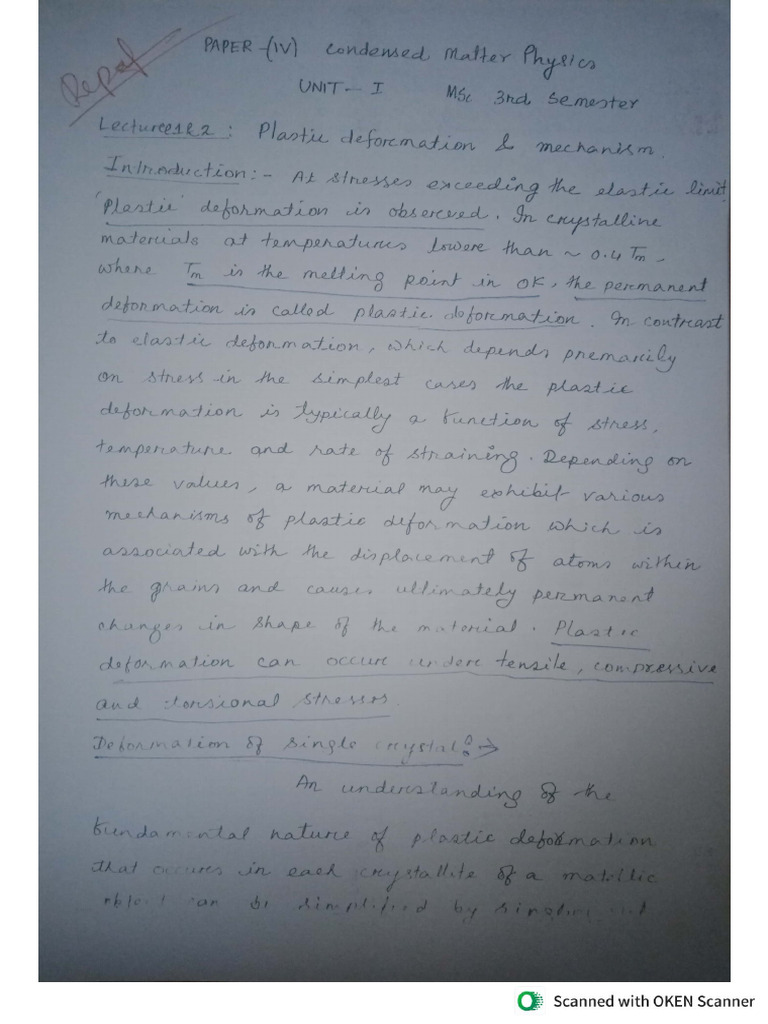 Repat
PAPER-(IV) Condensed Matter Physics
UNIT-I MSc 3rd Semester
Lecture 1&2 : Plastic deformation & mechanism.
Introduction:- At stresses exceeding the elastic limit
'Plastic' deformation is observed. In crystalline
materials at temperatures lower than ~ 0.4 Tm -
where Tm is the melting point in 0K, the permanent
deformation is called plastic deformation. In contrast
to elastic deformation, which depends primarily
on stress in the simplest cases the plastic
deformation is typically a function of stress,
temperature and rate of straining. Depending on
these values, a material may exhibit various
mechanisms of plastic deformation which is
associated with the displacement of atoms within
the grains and causes ultimately permanent
changes in shape of the material. Plastic
deformation can occur under tensile, compressive
and torsional stresses.
Deformation of single crystal:→
An understanding of the
fundamental nature of plastic deformation
that occures in each crystallite of a metallic
object can be simplified by
Scanned with OKEN Scanner